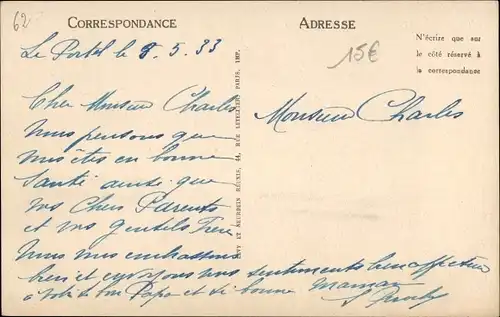 62
CORRESPONDANCE
ADRESSE
N'écrire que sur
le côté réservé à
la correspondance
15€
Le Portel le 8.5.33
Cher Monsieur Charles
Nous pensons que
vous êtes en bonne
Santé ainsi que
vos Chers Parents
et vos gentils
Nous vous embrassons
bien et envoyons nos sentiments bien affectueux
à votre bon Papa et si bonne Maman
Monsieur Charles
LEVY ET NEURDEIN RÉUNIS, 44, RUE LETELLIER, PARIS, IMP.